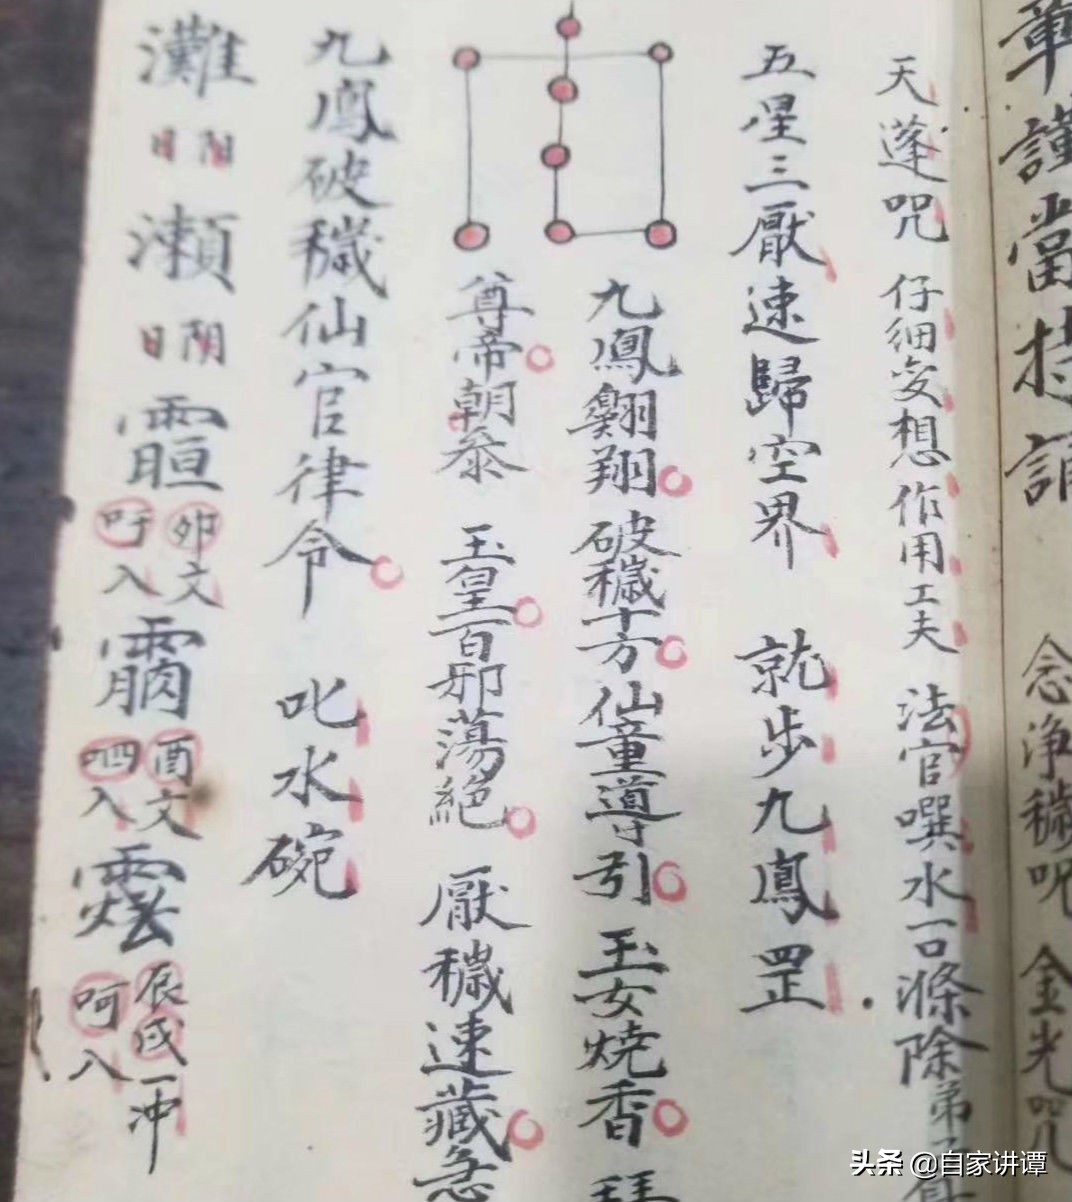 章謹當持誦
念净穢呪 金光咒
天蓬咒 仔細変想作用工夫 法官噀水一口滌除弟
五星三厭速歸空界 就步九鳳罡
九鳳翱翔 破穢十方 仙童導引 玉女燒香
尊帝朝叅 玉皇百邪蕩絕 厭穢速藏急
九鳳破穢仙官律令 叱水碗
灘 日阳 瀨 日阴
卯文 吁入
酉文 呬入
辰戌一冲 呵入
头条 @自家讲谭